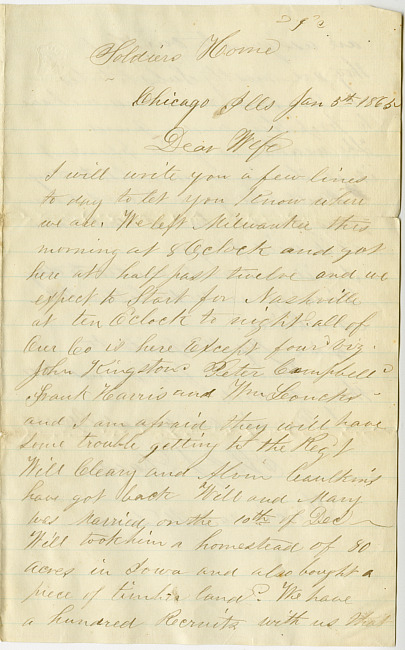 Soldiers Home
Chicago Ills Jan 5th 1865
Dear Wife
I will write you a few lines
to day to let you know where
we are. We left Milwaukee this
morning at 8 Oclock and got
here at half past twelve and we
expect to Start for Nashville
at ten O'clock to night. all of
Our Co is here Except four viz.
John Kingston Peter Campbell
Frank Harris and Wm Loucks
and I am afraid they will have
some trouble getting to the Regt
Will Cleary and Caulkins
have got back Will and Mary
was Married on the 10th of Dec
Will took him a homestead of 80
acres in Iowa and also bought a
piece of timber land. We have
a hundred Recruits with us that